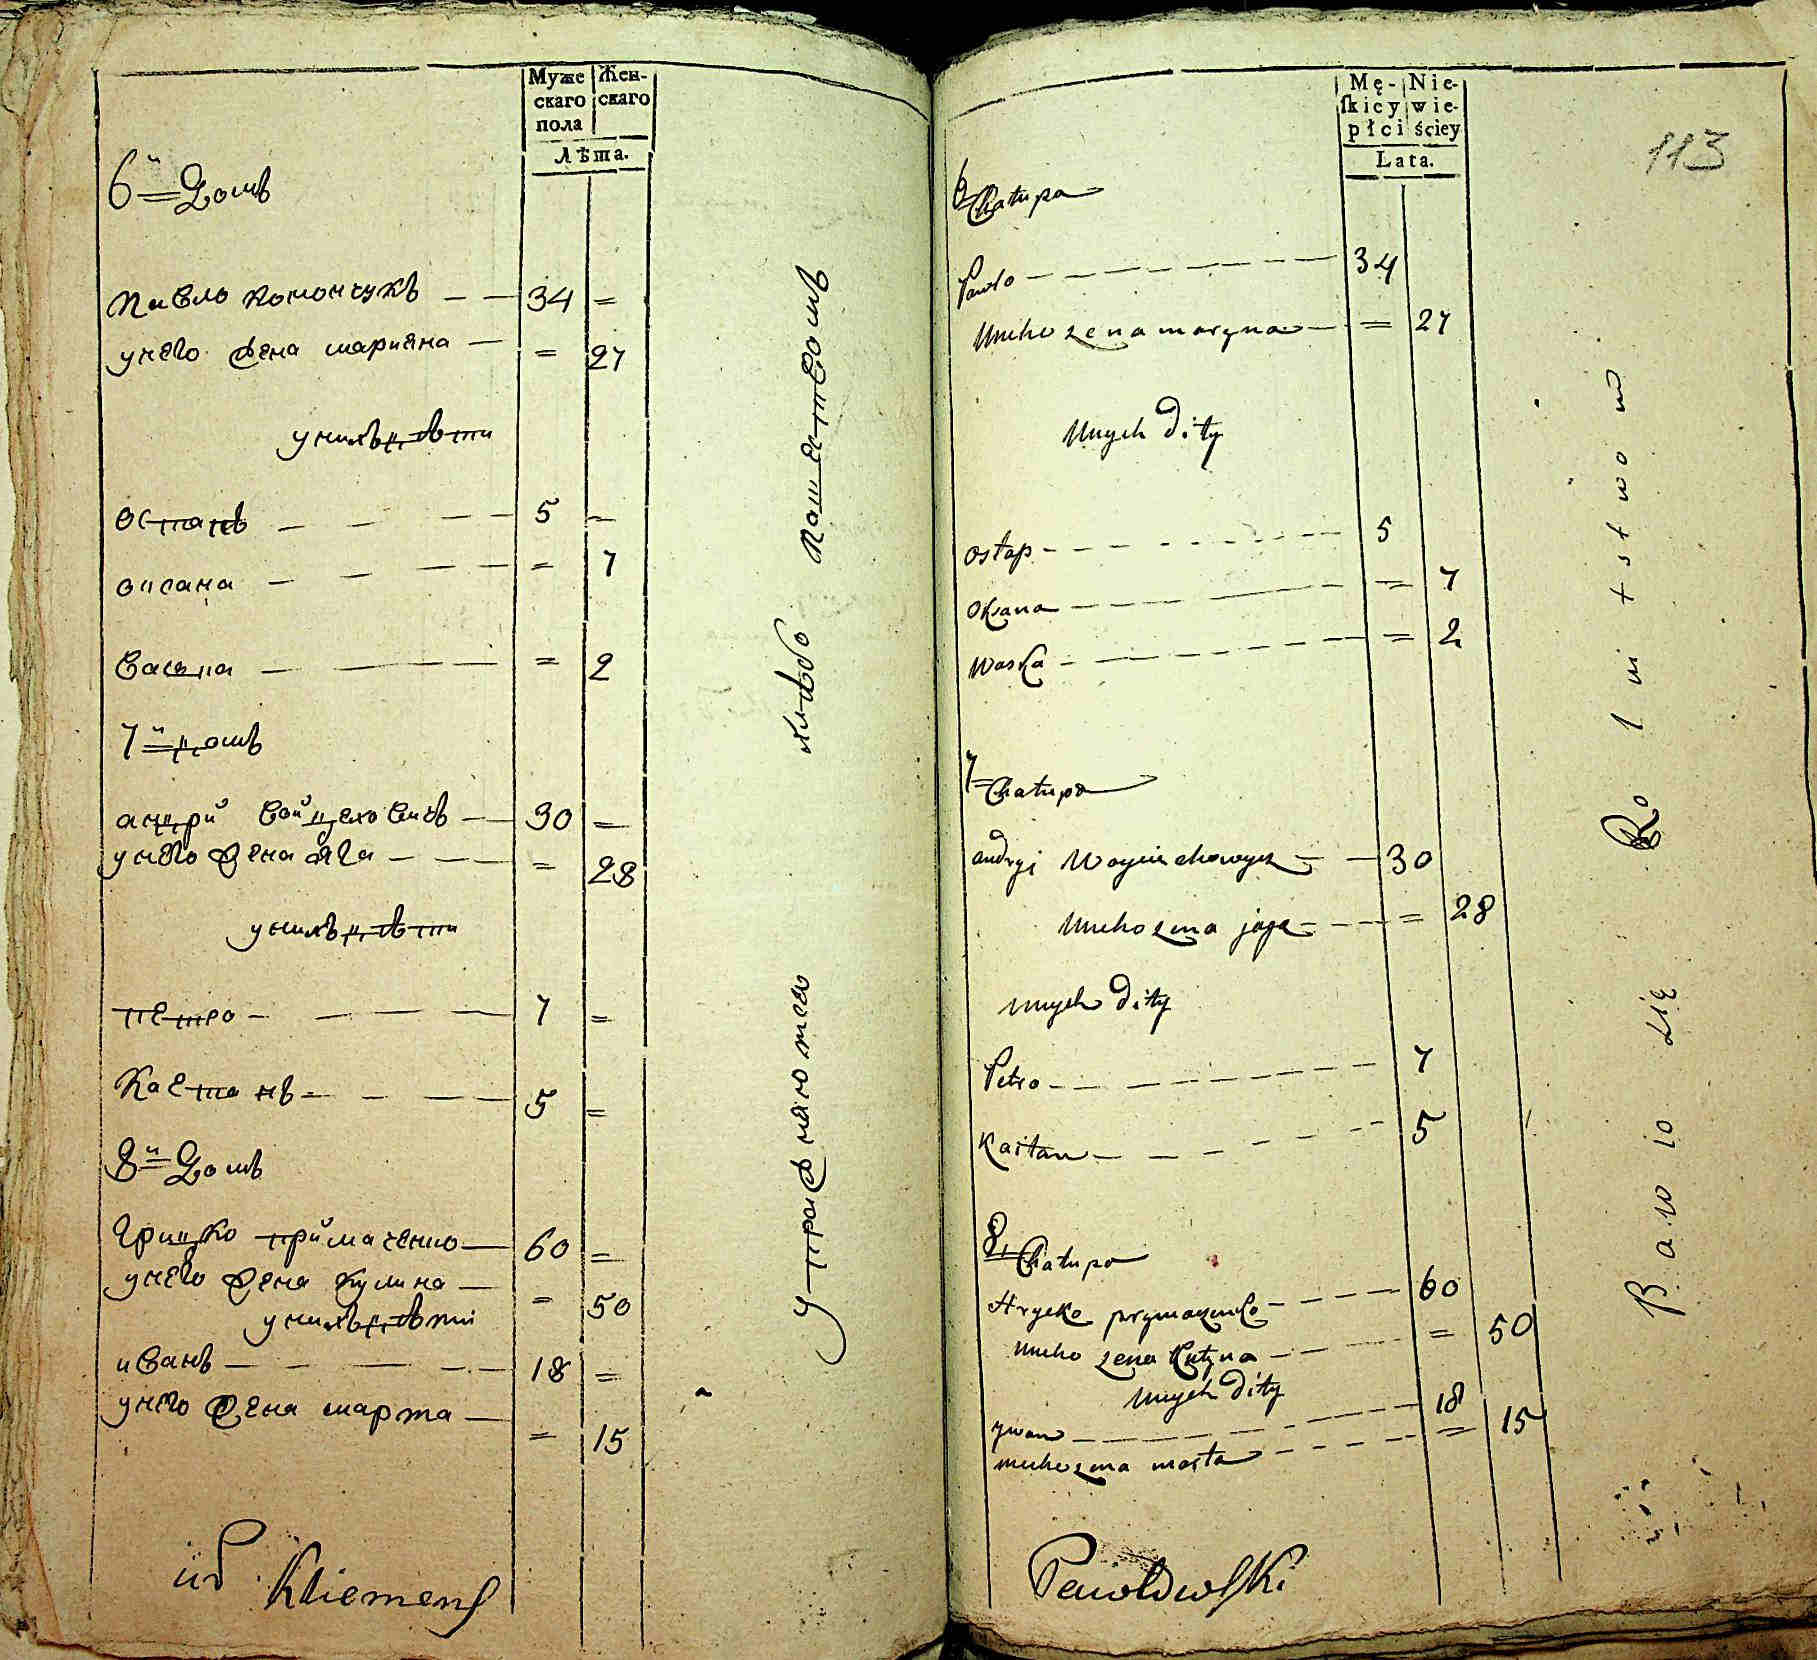 Муже
скаго
пола
Жен-
скаго
Лѣта.
6й Домъ
Павло Комончукъ — — 34 =
унего жена мариѣна — = 27
унихъ дѣти
остапъ — — — 5 =
оксана — — — = 7
васька — — — = 2
7й домъ
андрій войцеховичъ — 30 =
унего жена яга — — = 28
унихъ дѣти
петро — — — 7 =
Каетанъ — — — 5 =
8й Домъ
грицко приймаченко — 60 =
унего жена кулина — = 50
унихъ дѣти
иванъ — — — 18 =
унего жена марта — = 15
упражняютса хлѣбо пашетвомъ
Kliemens
Mę-
skiey
płci
Nie-
wie-
ściey
Lata.
113
6 Chatupa
Pawlo — — — 34
Uneho zena maryna — = 27
Unych Dity
ostap — — — 5
oxana — — — = 7
waska — — — = 2
7 Chatupa
andryj Woyciechowycz — — 30
Uneho zena jaga — — = 28
Unych Dity
Petro — — — 7
Kaitan — — — 5
8 Chatupa
Hrycko prymaczenko — — 60
Uneho zena Kulyna — — = 50
Unych Dity
ywan — — — 18
uneho zena marta — — = 15
Bawio się Rolnitstwom